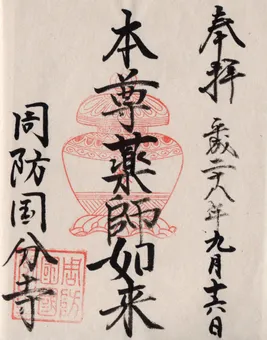 奉拝
平成二十八年九月十六日
本尊薬師如来
周防国分寺
周防国分寺